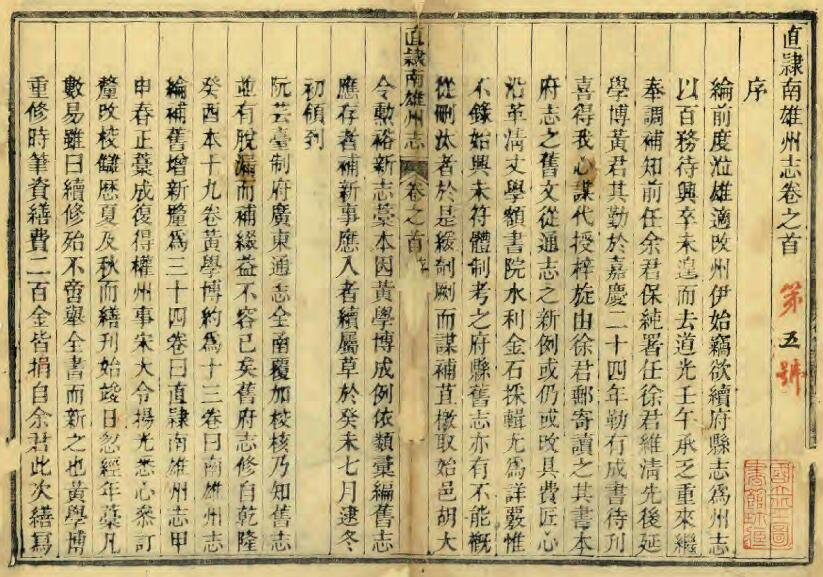 直隸南雄州志卷之首 第五號
序
綸前度涖雄適改州伊始竊欲續府縣志為州志
以百務待興卒未遑而去道光壬午承乏重來繼
奉調補知前任余君保純署任徐君維清先後延
學博黃君其勤於嘉慶二十四年勒有成書待刊
喜得我心謀代授梓旋由徐君郵寄讀之其書本
府志之舊文從通志之新例或仍或改具費匠心
沿革清丈學額書院水利金石採輯尤為詳覈惟
不錄始興未符體制考之府縣舊志亦有不能槪
從刪汰者於是緩剞劂而謀補苴檄取始邑胡大
直隸南雄州志 卷之首 序
令勲裕新志藁本因黃學博成例依類彙編舊志
應存者補新事應入者續屬草於癸未七月逮冬
初領到
阮芸臺制府廣東通志全南覆加校核乃知舊志
並有脫漏而補綴益不容已矣舊府志修自乾隆
癸酉本十九卷黃學博約為十三卷曰南雄州志
綸補舊增新釐為三十四卷曰直隸南雄州志甲
申春正藁成復得權州事宋大令揚光悉心叅訂
釐改校讎歷夏及秋而繕刊始竣日忽經年藁凡
數易雖曰續修殆不啻舉全書而新之也黃學博
重修時筆資繕費二百金皆捐自余君此次繕寫